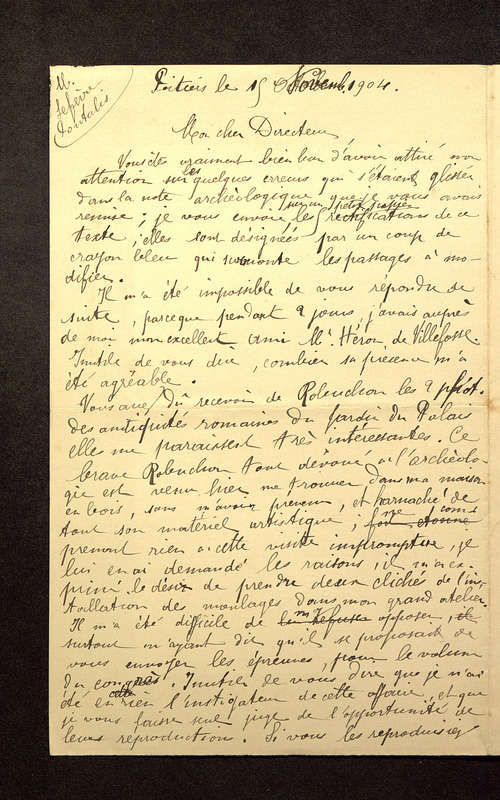 M.
Lefèvre
Pontalis
Poitiers le 15 Novemb. 1904.
Mon cher Directeur,
Vous êtes vraiment bien bon d'avoir attiré mon
attention sur les quelques erreurs qui s'étaient glissées
dans la note archéologique que je vous avais
remise ; je vous envoie les rectifications de ce
sur un petit papier
texte ; elles sont désignées par un coup de
crayon bleu qui surmonte les passages à mo-
difier.
Il m'a été impossible de vous répondre de
suite, parceque pendant 2 jours, j'avais auprès
de moi mon excellent ami Mr. Héron de Villefosse.
Inutile de vous dire, combien sa présence m'a
été agréable.
Vous avez dû recevoir de Robuchon les 2 phot.
des antiquités romaines du jardin du Palais
elles me paraissent très intéressantes. Ce
brave Robuchon tout dévoué à l'archéolo-
gie est venu hier me trouver dans ma maison
en bois, sans m'avoir prévenu, et harnaché de
tout son matériel artistique ; ne com-
prenant rien à cette visite impromptue, je
lui en ai demandé les raisons, il m'a ex-
primé le désir de prendre deux clichés de l'ins-
tallation des moulages dans mon grand atelier.
Il m'a été difficile de m'y opposer,
surtout m'ayant dit qu'il se proposait de
vous envoyer les épreuves, pour le volume
du congrès. Inutile de vous dire que je n'ai
été en rien l'instigateur de cette affaire, et que
je vous laisse seul juge de l'opportunité de
leurs reproductions. Si vous les reproduisiez